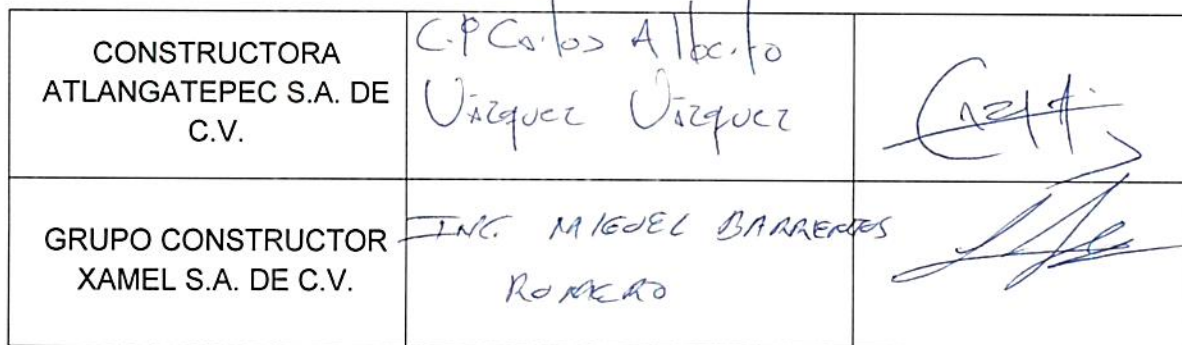 CONSTRUCTORA
ATLANGATEPEC S.A. DE
C.V.
C.P Carlos Alberto
Vázquez Vázquez
GRUPO CONSTRUCTOR
XAMEL S.A. DE C.V.
ING. MIGUEL BARRENTES
ROMERO